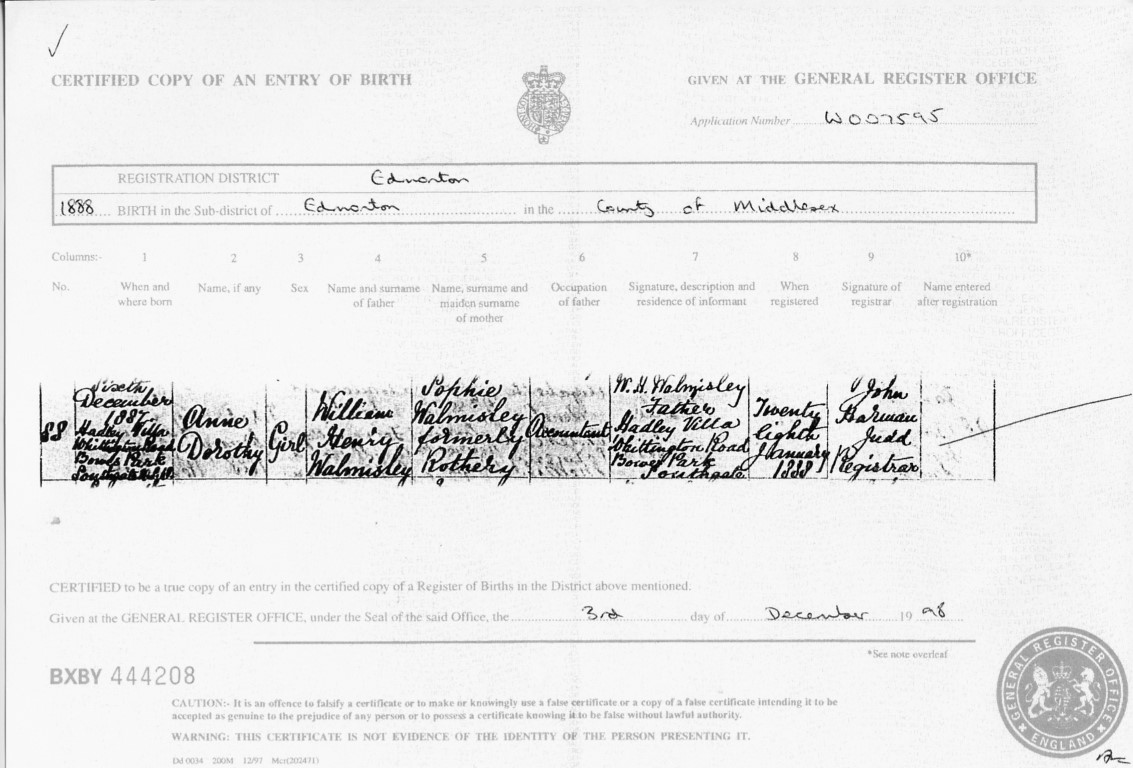 CERTIFIED COPY OF AN ENTRY OF BIRTH
GIVEN AT THE GENERAL REGISTER OFFICE
Application Number W007595
REGISTRATION DISTRICT Edmonton
1888 BIRTH in the Sub-district of Edmonton in the County of Middlesex
Columns:- 1 2 3 4 5 6 7 8 9 10*
No.
When and
where born
Name, if any
Sex
Name and surname
of father
Name, surname and
maiden surname
of mother
Occupation
of father
Signature, description and
residence of informant
When
registered
Signature of
registrar
Name entered
after registration
88
Sixth
December
1887
Hadley Villa
Whittington Road
Bowes Park
Anne
Dorothy
Girl
William
Henry
Walmisley
Sophie
Walmisley
formerly
Rothery
Accountant
W. H. Walmisley
Father
Hadley Villa
Whittington Road
Bowes Park
Southgate
Twenty
eighth
January
1888
John
Harman
Judd
Registrar
CERTIFIED to be a true copy of an entry in the certified copy of a Register of Births in the District above mentioned.
Given at the GENERAL REGISTER OFFICE, under the Seal of the said Office, the 3rd day of December 19 98
*See note overleaf
BXBY 444208
CAUTION:- It is an offence to falsify a certificate or to make or knowingly use a false certificate or a copy of a false certificate intending it to be
accepted as genuine to the prejudice of any person or to possess a certificate knowing it to be false without lawful authority.
WARNING: THIS CERTIFICATE IS NOT EVIDENCE OF THE IDENTITY OF THE PERSON PRESENTING IT.
Dd 0034 200M 12/97 Mcr(202471)
GENERAL REGISTER OFFICE
ENGLAND